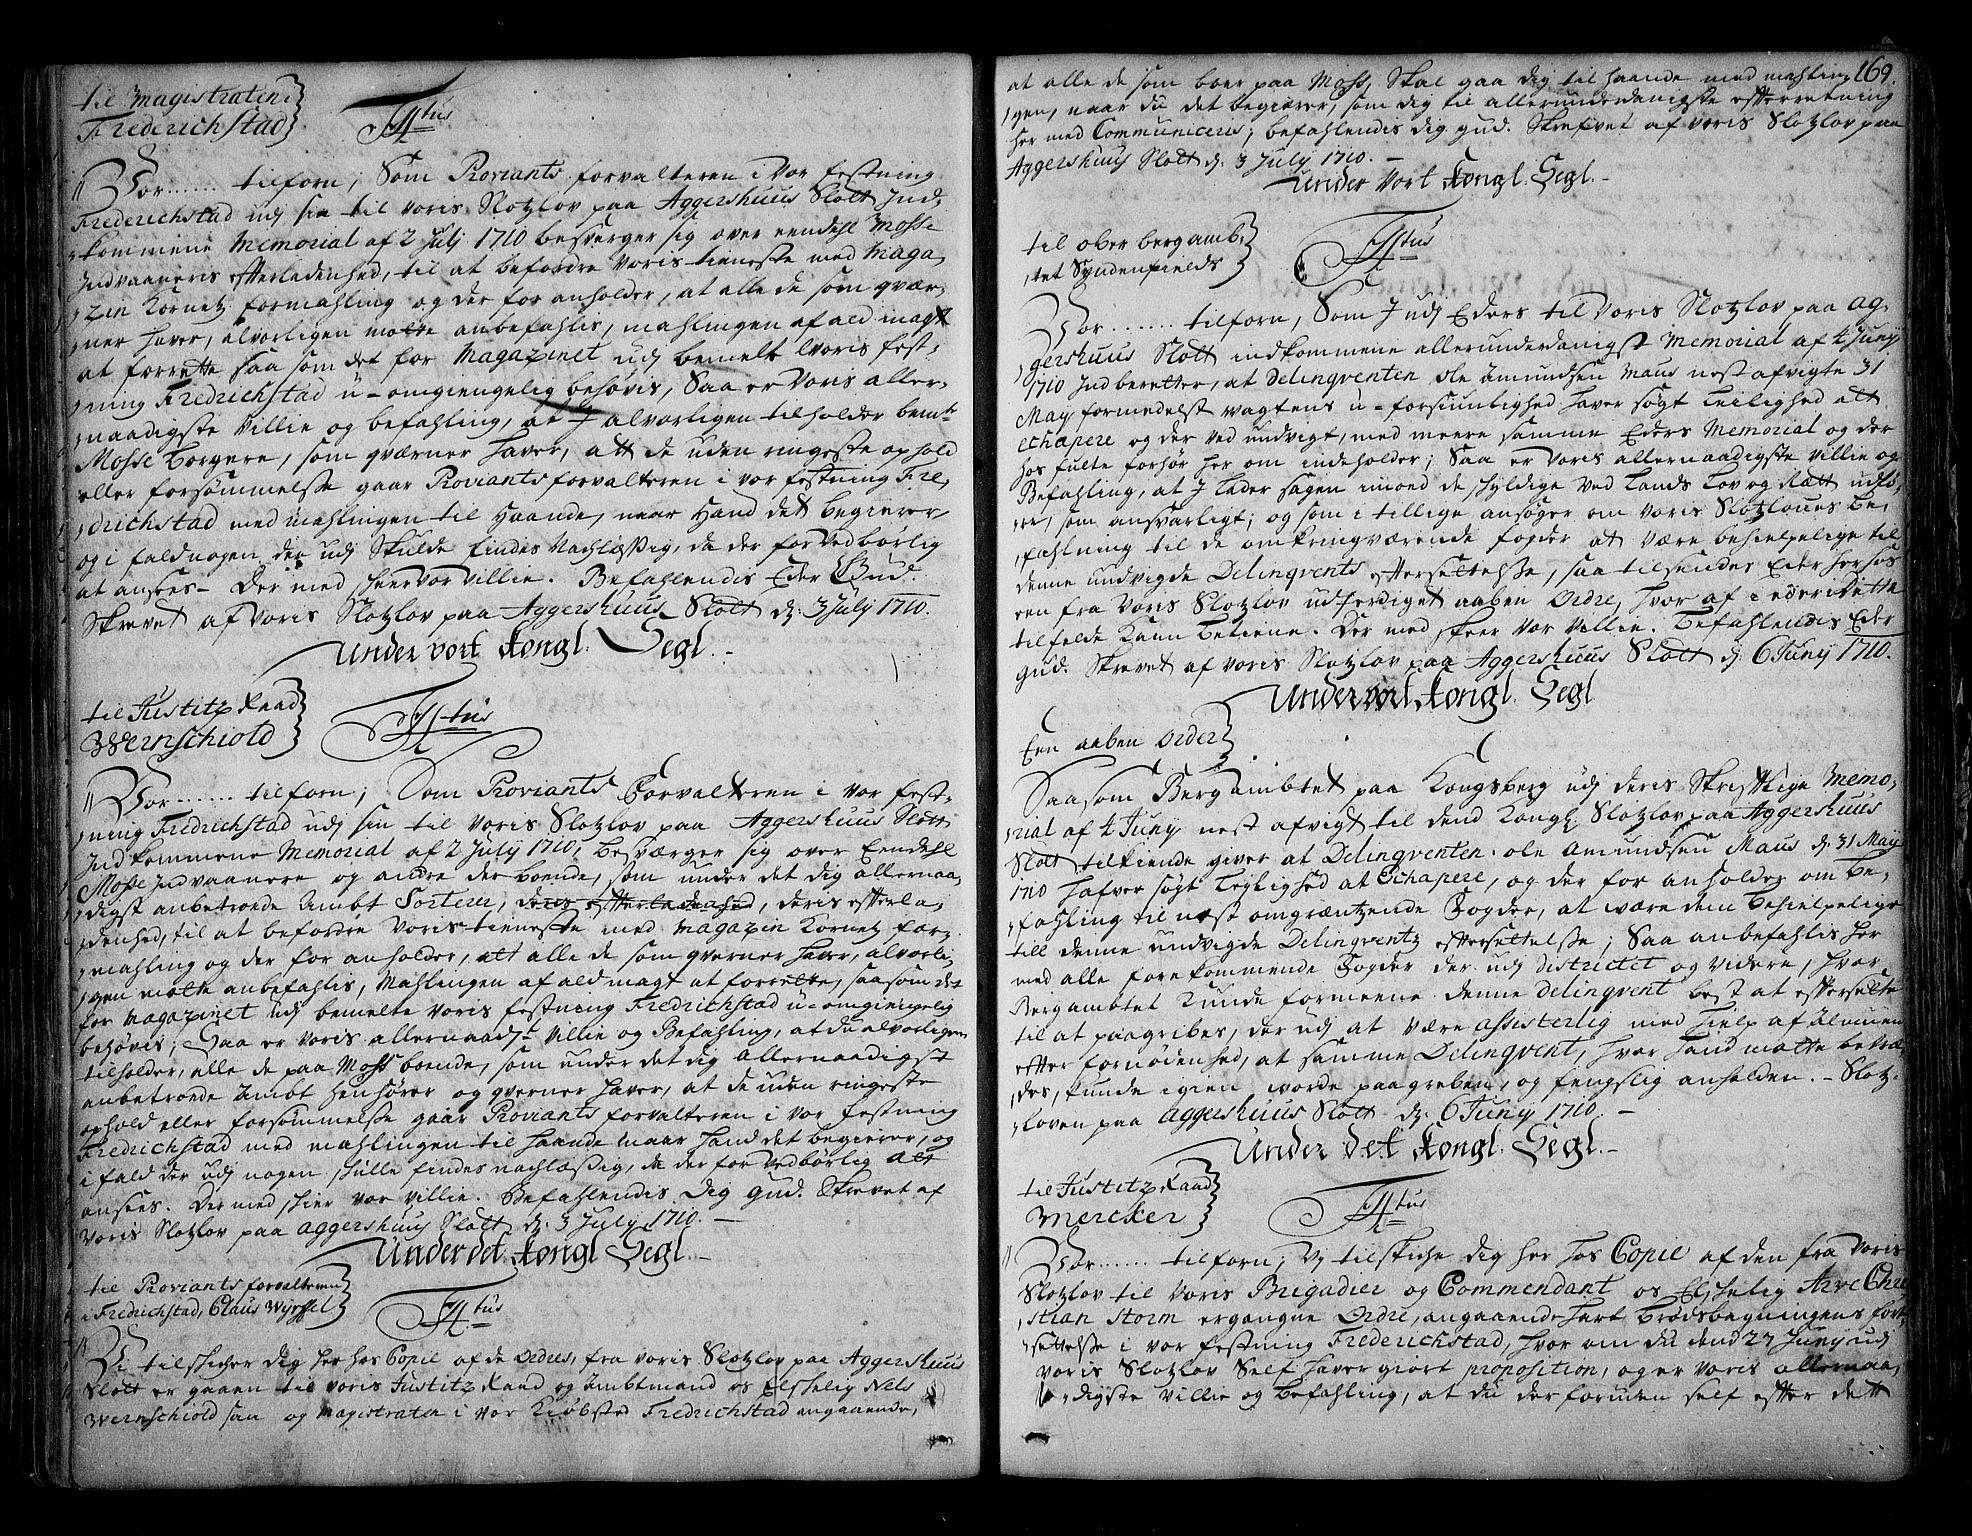 Til Magistraten i
Frederichstad
F4tus
Vor ...... tilforn; Som Proviants forvalteren i Vor festning
Frederichstad udj sin til Voris Slotzlov paa Aggershuus Slott Ind,
,kommene Memorial af 2 Julj 1710 besverger sig over eendehl Mosse
Indvaaneris efterladenhed, til at befordre Voris tieneste med Maga,
,zin Kornetz formahling og der for anholder, at alle de som qvær,
,ner haver, alvorligen motte anbefahlis, mahlingen af ald magt
at forrette saa som det for Magazinet udj bemelte Voris fest,
,ning Fredrichstad u-omgiengelig behøvis, Saa er Voris aller,
,naadigste Villie og befahling, at I alvorligen tilholder bemte
Mosse borgere, som qværner haver, att de uden ringeste ophold
eller forsømmelse gaar Proviantsforvalteren i vor festning Fre,
,drichstad med mahlingen til haande, naar hand det begierer,
og i fald nogen der udj skulde findes Nachlæssig, da der for vedbørlig
at ansees - Der med skeer vor villie. Befahlendis Eder Gud.
Skrevet af Voris Slotzlov paa Aggershuus Slott d: 3 July 1710.
Under vort kongl. Segl.
Til Justitz Raad
Wernschiold
F4tus
Vor ...... tilforn; Som Proviants Forvalteren i vor fest,
,ning Fredrichstad udj sin til Voris Slotzlov paa Aggershuus Slott
Indkommene Memorial af 2 July 1710, besværger sig over Eendehl
Mosse Indvaanere og andre der boende, som under det dig allernaa,
,digst anbetroede Ambt Sorterer, deris efterladenhed, deris efterla,
,denhed, til at befordre Voris tieneste med Magazin Kornetz for,
,mahling og der for anholder, att alle de som qverner haver, alvorli,
,gen motte anbefahlis, Mahlingen af ald magt at forrette, saasom det
for Magazinet udj bemelte Voris festning Fredrichstad u-omgiengelig
behøvis; Saa er Voris allernaadst Villie og Befahling, at du alvorligen
tilholder, alle de paa Moss boende, som under det dig Allernaadigst
anbetroede Ambt henhører og qverner haver, at de uden ringeste
ophold eller forsømmelse gaar Proviants forvalteren i vor festning
Fredrichstad med mahlingen til haande naar hand det begierer, og
i fald der udj nogen skulle findes nachlæssig, da der for vedbørlig att
ansees. Der med skier vor villie. Befahlendis Dig Gud. Skrevet af
Voris Slotzlov paa Aggershuus Slott d: 3 July 1710.
Under det kongl Segl.
Til Proviants forvalteren
i Fredrichstad, Claus Wyssel
F4tus
Vi tilskicher dig her hos Copie af de Ordres, fra Voris Slotzlov paa Aggershuus
Slott er gaaen til Voris Justitz Raad og Ambtmand os Elskelig Nels
Wernschiold saa og Magistraten i Vor Kiøbsted Fredrichstad angaaende,
169.
at alle de som boer paa Moss, Skal gaa dig til haande med mahlin,
,gen, naar du det begierer, som dig til allerunderdanigste efterretning
her med Communiceris; befahlendis dig gud. Skrefvet af Voris Slotzlov paa
Aggershuus Slott d: 3 July 1710.
Under Vort kongl. Segl.
Til ober bergamb,
,tet Syndenfields
F4tus
Vor ...... tilforn, Som I udj Eders til Voris Slotzlov paa Ag,
,gershuus Slott indkommene allerunderdanigst Memorial af 4 Juny
1710 Indberetter, at Delinqventen Ole Amundsen Maus nest afvigte 31
May formedelst vagtens u-forsiunlighed haver søgt leilighed att
echapere og der ved undvigt, med meere samme Eders Memorial og der
hos fulte forhør her om indeholder; Saa er Voris allernaadigste Villie og
Befahling, at I lader sagen imod de skyldige ved Lands Lov og Rætt udfø,
,re, som ansvarligt; og som i tillige ansøger om Voris Slotzlovs Be,
,fahlning til de omkringværende fogder at være behielpelige til
denne undvigde Delinqvents eftersettelse, saa tilsendes Eder herhos
een fra Voris Slotzlov udferdiget aaben Ordre, hvor af i ederi dette
tilfelde kand betiene. Der med skeer Vor Villie. Befahlendis Eder
gud. Skrevet af Voris Slotzlov paa Aggershuus Slott d: 6 Juny 1710.
Under vort kongl. Segl
Een aaben Order
Saasom Bergambtet paa Kongsberg udj deris Skriftlige Memo,
,rial af 4 Juny nest afvigt til dend Kongl: Slotzlov paa Aggershuus
Slott tilkiende giver at Delinqventen Ole Amundsen Maus d: 31 May
1710 hafver søgt leylighed at Echapere, og der for anholder om be,
,fahling til nest omgræntzende Fogder, at være dem behielpelige
till denne undvigde Delinqventz eftersettelse; Saa anbefahlis her
med alle forekommende Fogder der udj districtet og videre, hvor
Bergambtet kunde formeene denne Delinqvent best at eftersette
til at paagribes, der udj at være assisterlig med hielp af Almuen
efter fornødenhed, at samme Delinqvent, hvor hand motte betræ,
,des, kunde igien vorde paagreben, og fengslig anholden. - Slotz,
,loven paa Aggershuus Slott d: 6 Juny 1710.
Under det kongl. Segl.
Til Justitz Raad
Mercker
F4tus
Vor ...... tilforn; Vj tilskiche dig her hos Copie af den fra Voris
Slotzlov til Voris Brigadier og Commendant os Elskelig Arve Chri
,stian Storm ergangne Ordre, angaaende hart Brødsbagningens fort,
,settelse i vor festning Frederichstad, hvor om du dend 27 Juny udj
Voris Slotzlov Self haver giort proposition, og er Voris allernaa,
,digste Villie og Befahling, at du der formen self efter dett